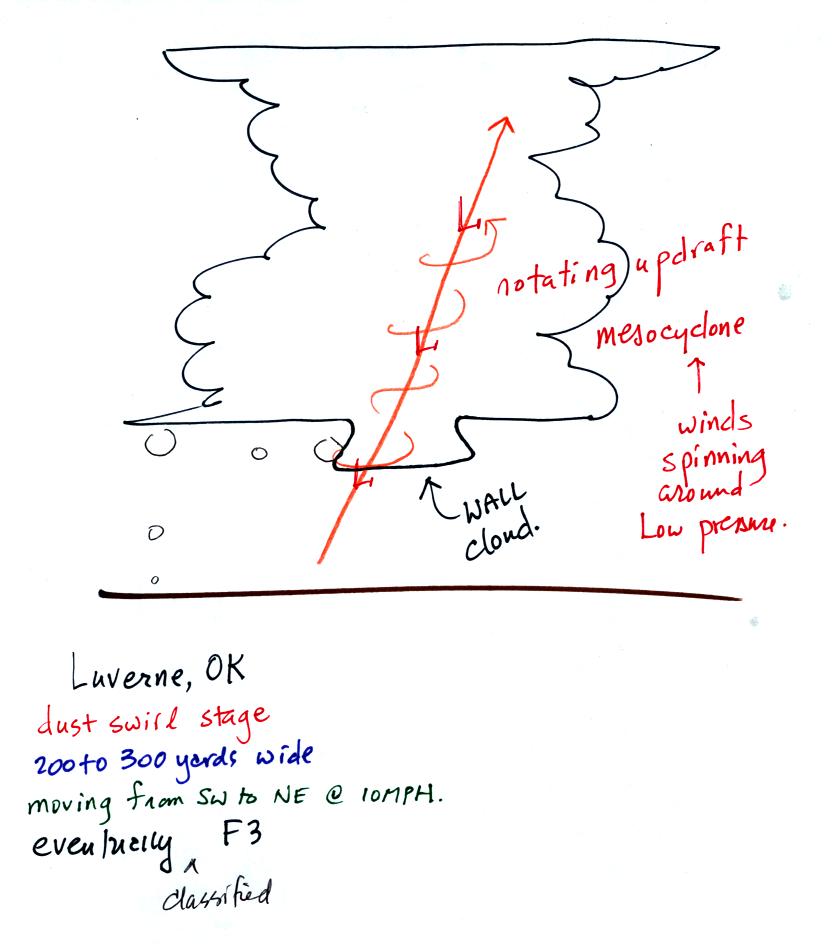 L
L
rotating updraft
mesocyclone
winds
spinning
around
Low pressure.
L
WALL
cloud.
Luverne, OK
dust swirl stage
200 to 300 yards wide
moving from SW to NE @ 10MPH.
eventually ^ F3
classified